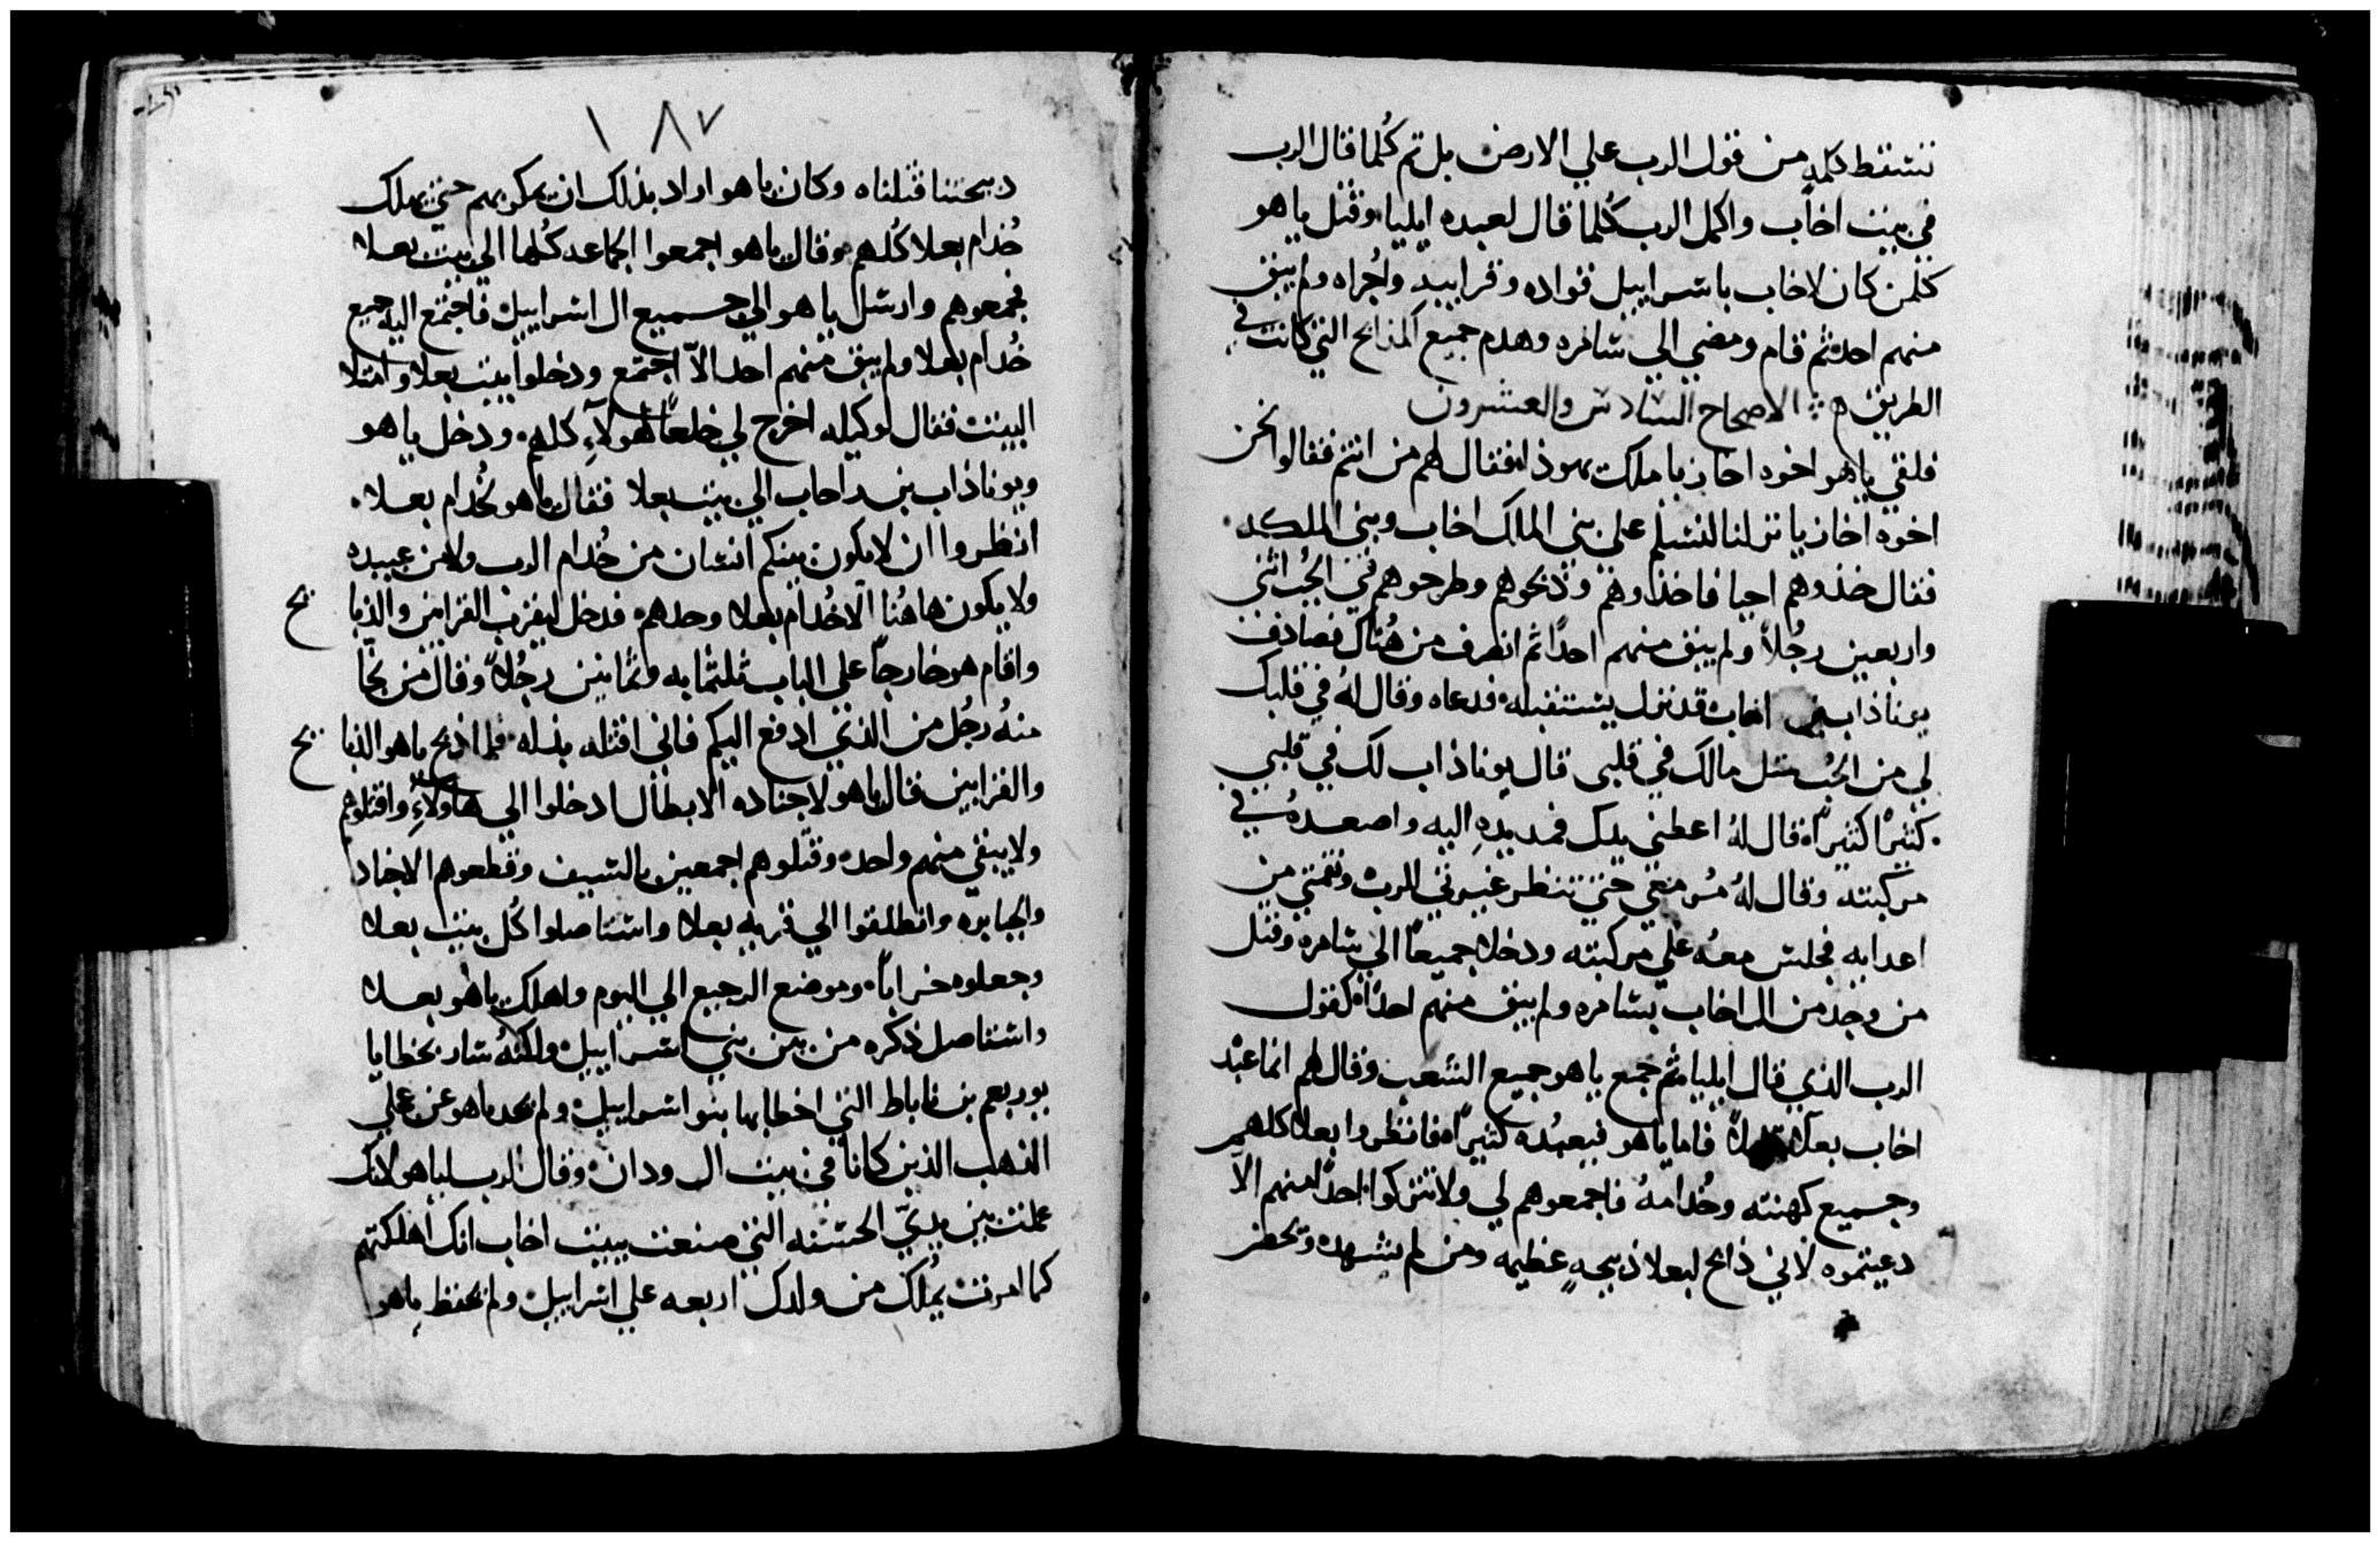 تسقط كلمه من قول الرب علي الارض بل تم كُلما قال الرب
في بيت اخاب واكمل الرب كُلما قال لعبده ايليا وقتل ياهو
كلمن كان لاخاب باسراييل قواده وقراييبه واُجراه ولم يبق
منهم احد ثم قام ومضي الي سامره وهدم جميع المذابح التي كانت في
الطريق ۞ الاصحاح السادس والعشرون
فلقي ياهو اخوه احازيا ملك يهوذا فقال لهم من انتم فقالوا نحن
اخوه احازيا نزلنا لنسلم علي بني الملك اخاب وبني الملكه
فقال خذوهم احيا فاخذوهم وذبحوهم وطرحوهم في الجُب اثني
واربعين رجُلاً ولم يبق منهم احدًا ثم انطرف من هُناك فصادف
يوناذاب بن اخاب قد نزل يستقبله فدعاه وقال لهُ في قلبك
لي من الحُب مثل مالك في قلبي قال يوناذاب لك في قلبي
كثيرًا كثيرًا قال لهُ اعطني يدك فمد يده اليه واصعدهُ في
مركبته وقال لهُ سُر معي حتي تنظر غيرتي للرب ونقمتي من
اعدايه فجلس معهُ علي مركبته ودخلا جميعًا الي سامره وقتل
من وجد من ال اخاب بسامره ولم يبق منهم احدًا كقول
الرب الذي قال ايليا ثم جمع ياهو جميع الشعب وقال لهم انما عبْد
اخاب بعلا قليلاً فاما ياهو فيعبُده كثيرًا فانظروا بعلا كلهم
وجميع كهنته وخُدامهُ فاجمعوهم لي ولا تتركوا احدًا منهم الا
دعيتموه لاني ذابح لبعلا ذبيحهٍ عظيمه ومن لم يشهده ويحضر
١٨٧
دبيحتنا قتلناه وكان ياهو اراد بذلك ان يمكر بهم حتي يهلك
خُدام بعلا كُلهم وقال ياهو اجمعوا الجماعه كُلها الي بيت بعلا
فجمعوهم وارسل ياهو الي جميع ال اسراييل فاجتمع اليه جميع
خُدام بعلا ولم يبق منهم احد الاّ اجتمع ودخلوا بيت بعلا وامتلا
البيت فقال لوكيله اخرج لي خلعًا لهولاءِ كلهم ودخل ياهو
ويوناذاب بن راحاب الي بيت بعلا فقال ياهو لخُدام بعلا
انظروا ان لا يكون بينكم انسان من خُدام الرب ولا من عبيده
ولا يكون هاهُنا الاخُدام بعلا وحدهم فدخل ليقرب القرابين والذبا يح
واقام هو خارجًا علي الباب ثلثمايه وثمانين رجُلاً وقال من نجّا
منهُ رجُل من الذي ادفع اليكم فاني اقتله بدله فلما اذبح ياهو الذبا يح
والقرابين قال ياهو لاجناده الابطال ادخلوا الي هاولاءِ واقتلوهم
ولا يبقي منهم واحد وقتلوهم اجمعين بالسيف وقطعوهم الاجناد
والجبابره وانطلقوا الي قريه بعلا واستاصلوا كُل بيت بعلا
وجعلوه خرابًا وموضع الرجيع الي اليوم واهلك ياهو بعلا
واستاصل ذكره من بين بني اسراييل ولكنهُ سار بخطايا
يوربعم بن ناباط التي اخطا بها بنو اسراييل ولم يحد ياهو عن عجلي
الذهب الذين كانا في بيت ال ودان وقال الرب لياهو لانك
عملت بين يديّ الحسنه التي صنعت ببيت اخاب انك اهلكتهم
كما امرت يُملك من ولدك اربعه علي اسراييل ولم يحفظ ياهو